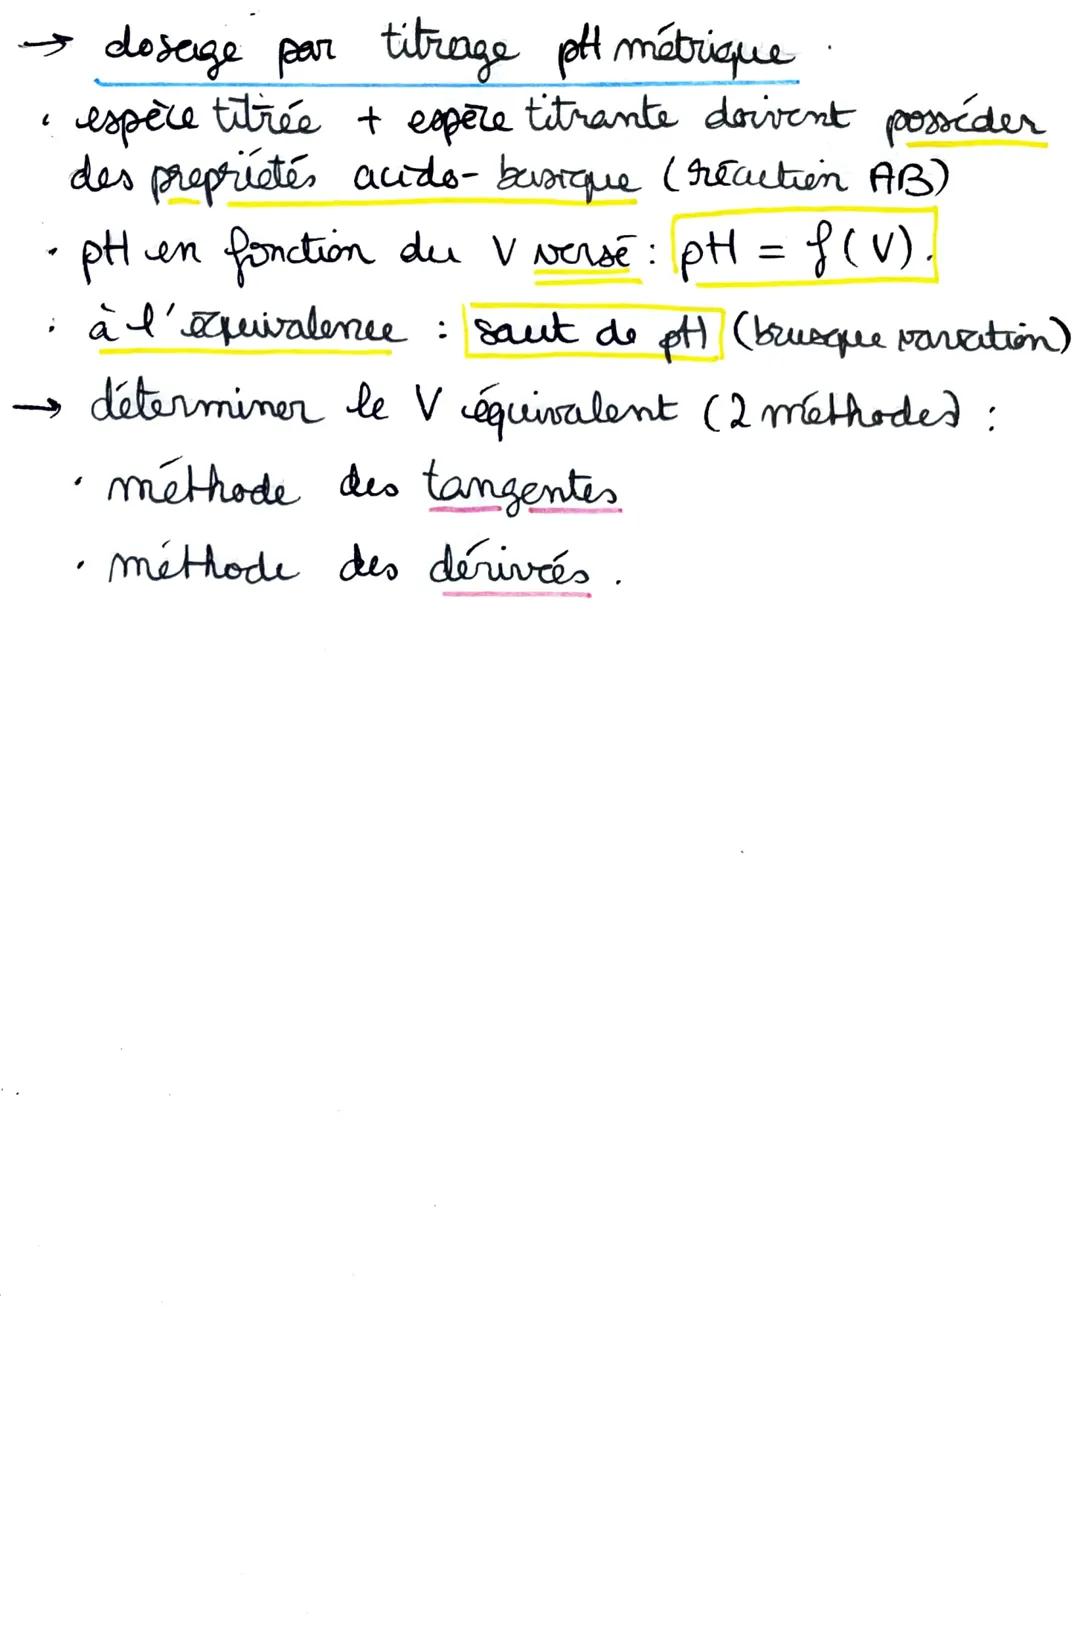 → dosage par titrage pH métrique.
• espèce titrée + espèce titrante doivent posséder
des propriétés acido-basique (réaction AB)
• pH en fonction du V versé : pH = f(V).
• à l'équivalence : saut de pH (brusque variation)
→ déterminer le V équivalent (2 méthodes) :
• méthode des tangentes
• méthode des dérivés.